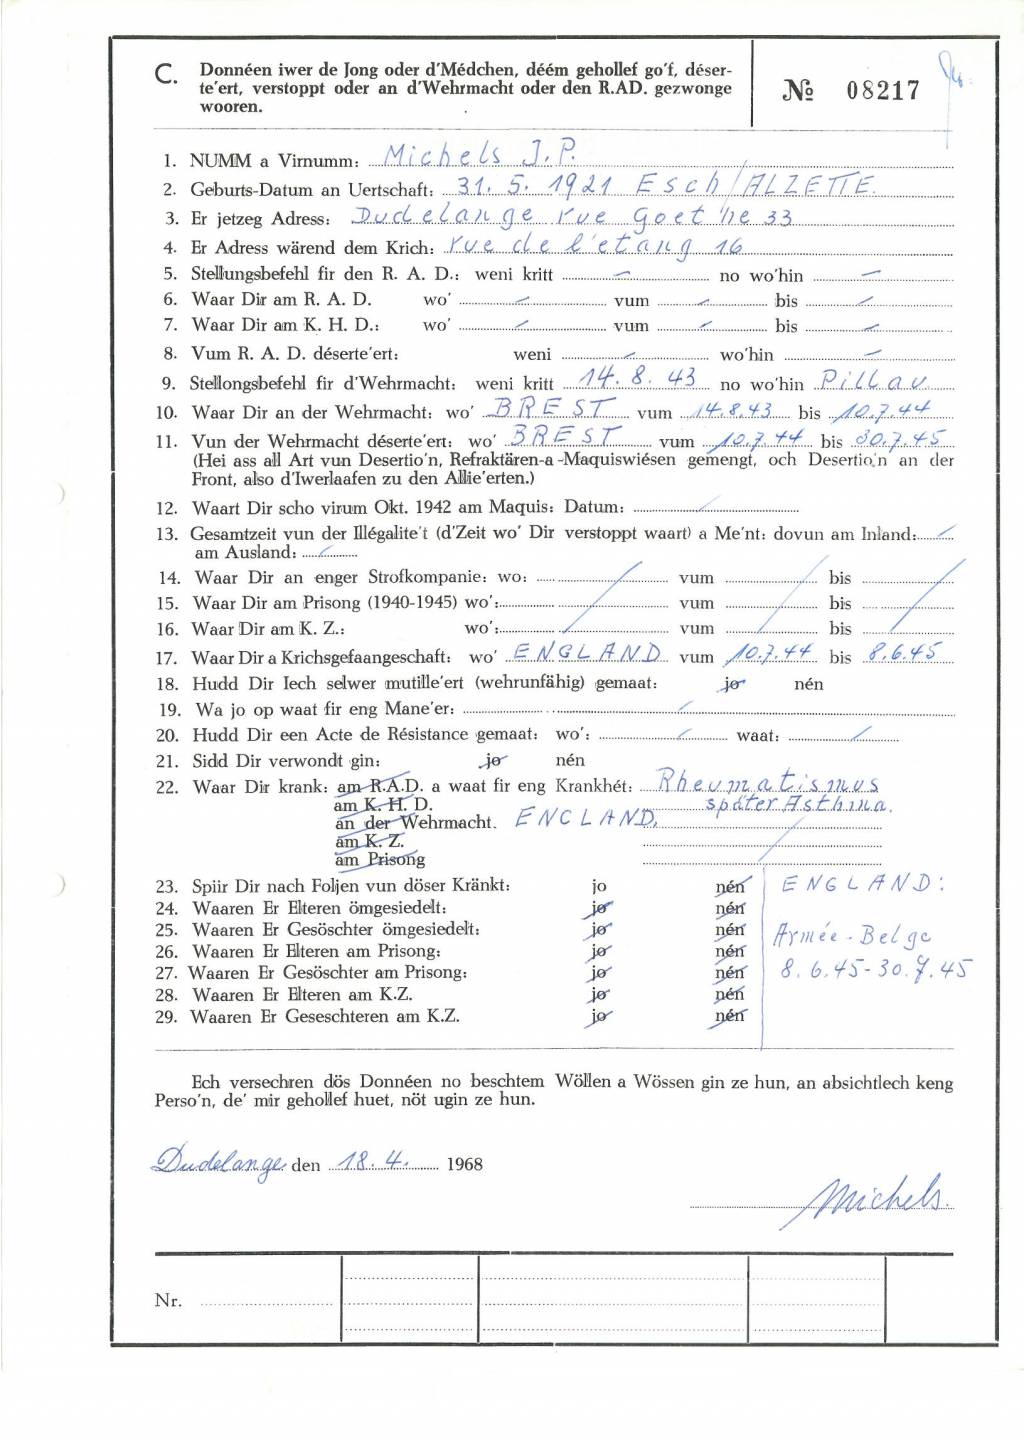 C. Donnéen iwer de Jong oder d'Médchen, déém gehollef go'f, déser-
te'ert, verstoppt oder an d'Wehrmacht oder den R.AD. gezwonge
wooren.
№ 08217
1. NUMM a Virnumm: Michels J.P.
2. Geburts-Datum an Uertschaft: 31. 5. 1921 Esch/ALZETTE.
3. Er jetzeg Adress: Dudelange rue Goethe 33
4. Er Adress wärend dem Krich: rue de l'etang 16
5. Stellungsbefehl fir den R. A. D.: weni kritt — no wo'hin —
6. Waar Dir am R. A. D. wo' — vum — bis —
7. Waar Dir am K. H. D.: wo' — vum — bis —
8. Vum R. A. D. déserte'ert: weni — wo'hin —
9. Stellongsbefehl fir d'Wehrmacht: weni kritt 14. 8. 43 no wo'hin Pillau
10. Waar Dir an der Wehrmacht: wo' BREST vum 14.8.43 bis 10.7.44
11. Vun der Wehrmacht déserte'ert: wo' BREST vum 10.7.44 bis 30.7.45
(Hei ass all Art vun Desertio'n, Refraktären-a-Maquiswiésen gemengt, och Desertio'n an der
Front, also d'Iwerlaafen zu den Allie'erten.)
12. Waart Dir scho virum Okt. 1942 am Maquis: Datum: /
13. Gesamtzeit vun der Illégalite't (d'Zeit wo' Dir verstoppt waart) a Me'nt: dovun am Inland: /
am Ausland: /
14. Waar Dir an enger Strofkompanie: wo: / vum / bis /
15. Waar Dir am Prisong (1940-1945) wo': / vum / bis /
16. Waar Dir am K. Z.: wo': / vum / bis /
17. Waar Dir a Krichsgefaangeschaft: wo' ENGLAND vum 10.7.44 bis 8.6.45
18. Hudd Dir Iech selwer mutille'ert (wehrunfähig) gemaat: jo nén
19. Wa jo op waat fir eng Mane'er: /
20. Hudd Dir een Acte de Résistance gemaat: wo': / waat: /
21. Sidd Dir verwondt gin: jo nén
22. Waar Dir krank: am R.A.D. a waat fir eng Krankhét: Rheumatismus
am K. H. D. später Asthma.
an der Wehrmacht. ENGLAND.
am K. Z.
am Prisong
23. Spiir Dir nach Foljen vun döser Kränkt: jo nén ENGLAND:
24. Waaren Er Elteren ömgesiedelt: jo nén
25. Waaren Er Gesöschter ömgesiedelt: jo nén Armée-Belge
26. Waaren Er Elteren am Prisong: jo nén
27. Waaren Er Gesöschter am Prisong: jo nén 8. 6.45-30.7.45
28. Waaren Er Elteren am K.Z. jo nén
29. Waaren Er Geseschteren am K.Z. jo nén
Ech versechren dös Donnéen no beschtem Wöllen a Wössen gin ze hun, an absichtlech keng
Perso'n, de' mir gehollef huet, nöt ugin ze hun.
Dudelange den 18. 4. 1968
Michels.
Nr.